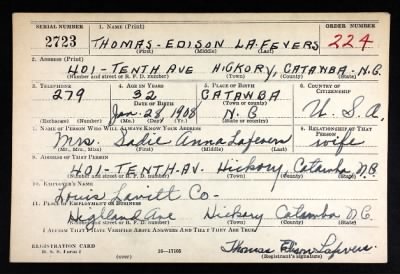 SERIAL NUMBER 1. NAME (Print) ORDER NUMBER
2723 THOMAS - EDISON LA.FEVERS 224
(First) (Middle) (Last)
2. ADDRESS (Print)
401 - TENTH AVE HICKORY, CATAWBA - N.C.
(Number and street or R. F. D. number) (Town) (County) (State)
3. TELEPHONE 4. AGE IN YEARS 5. PLACE OF BIRTH 6. COUNTRY OF CITIZENSHIP
279 32 CATAWBA
DATE OF BIRTH (Town or county)
Jan. 28 1908 N. C U. S. A.
(Exchange) (Number) (Mo.) (Day) (Yr.) (State or country)
7. NAME OF PERSON WHO WILL ALWAYS KNOW YOUR ADDRESS 8. RELATIONSHIP OF THAT PERSON
Mrs. Sadie Anna Lafevers wife
(Mr., Mrs., Miss) (First) (Middle) (Last)
9. ADDRESS OF THAT PERSON
401 - TENTH - AV. Hickory Catawba N.C.
(Number and street or R. F. D. number) (Town) (County) (State)
10. EMPLOYER'S NAME
Louis Lavitt Co -
11. PLACE OF EMPLOYMENT OR BUSINESS
Highland Ave Hickory Catawba N.C.
(Number and street or R. F. D. number) (Town) (County) (State)
I AFFIRM THAT I HAVE VERIFIED ABOVE ANSWERS AND THAT THEY ARE TRUE.
REGISTRATION CARD Thomas Edison Lafevers
D. S. S. Form 1 (over) 16-17105 (Registrant's signature)